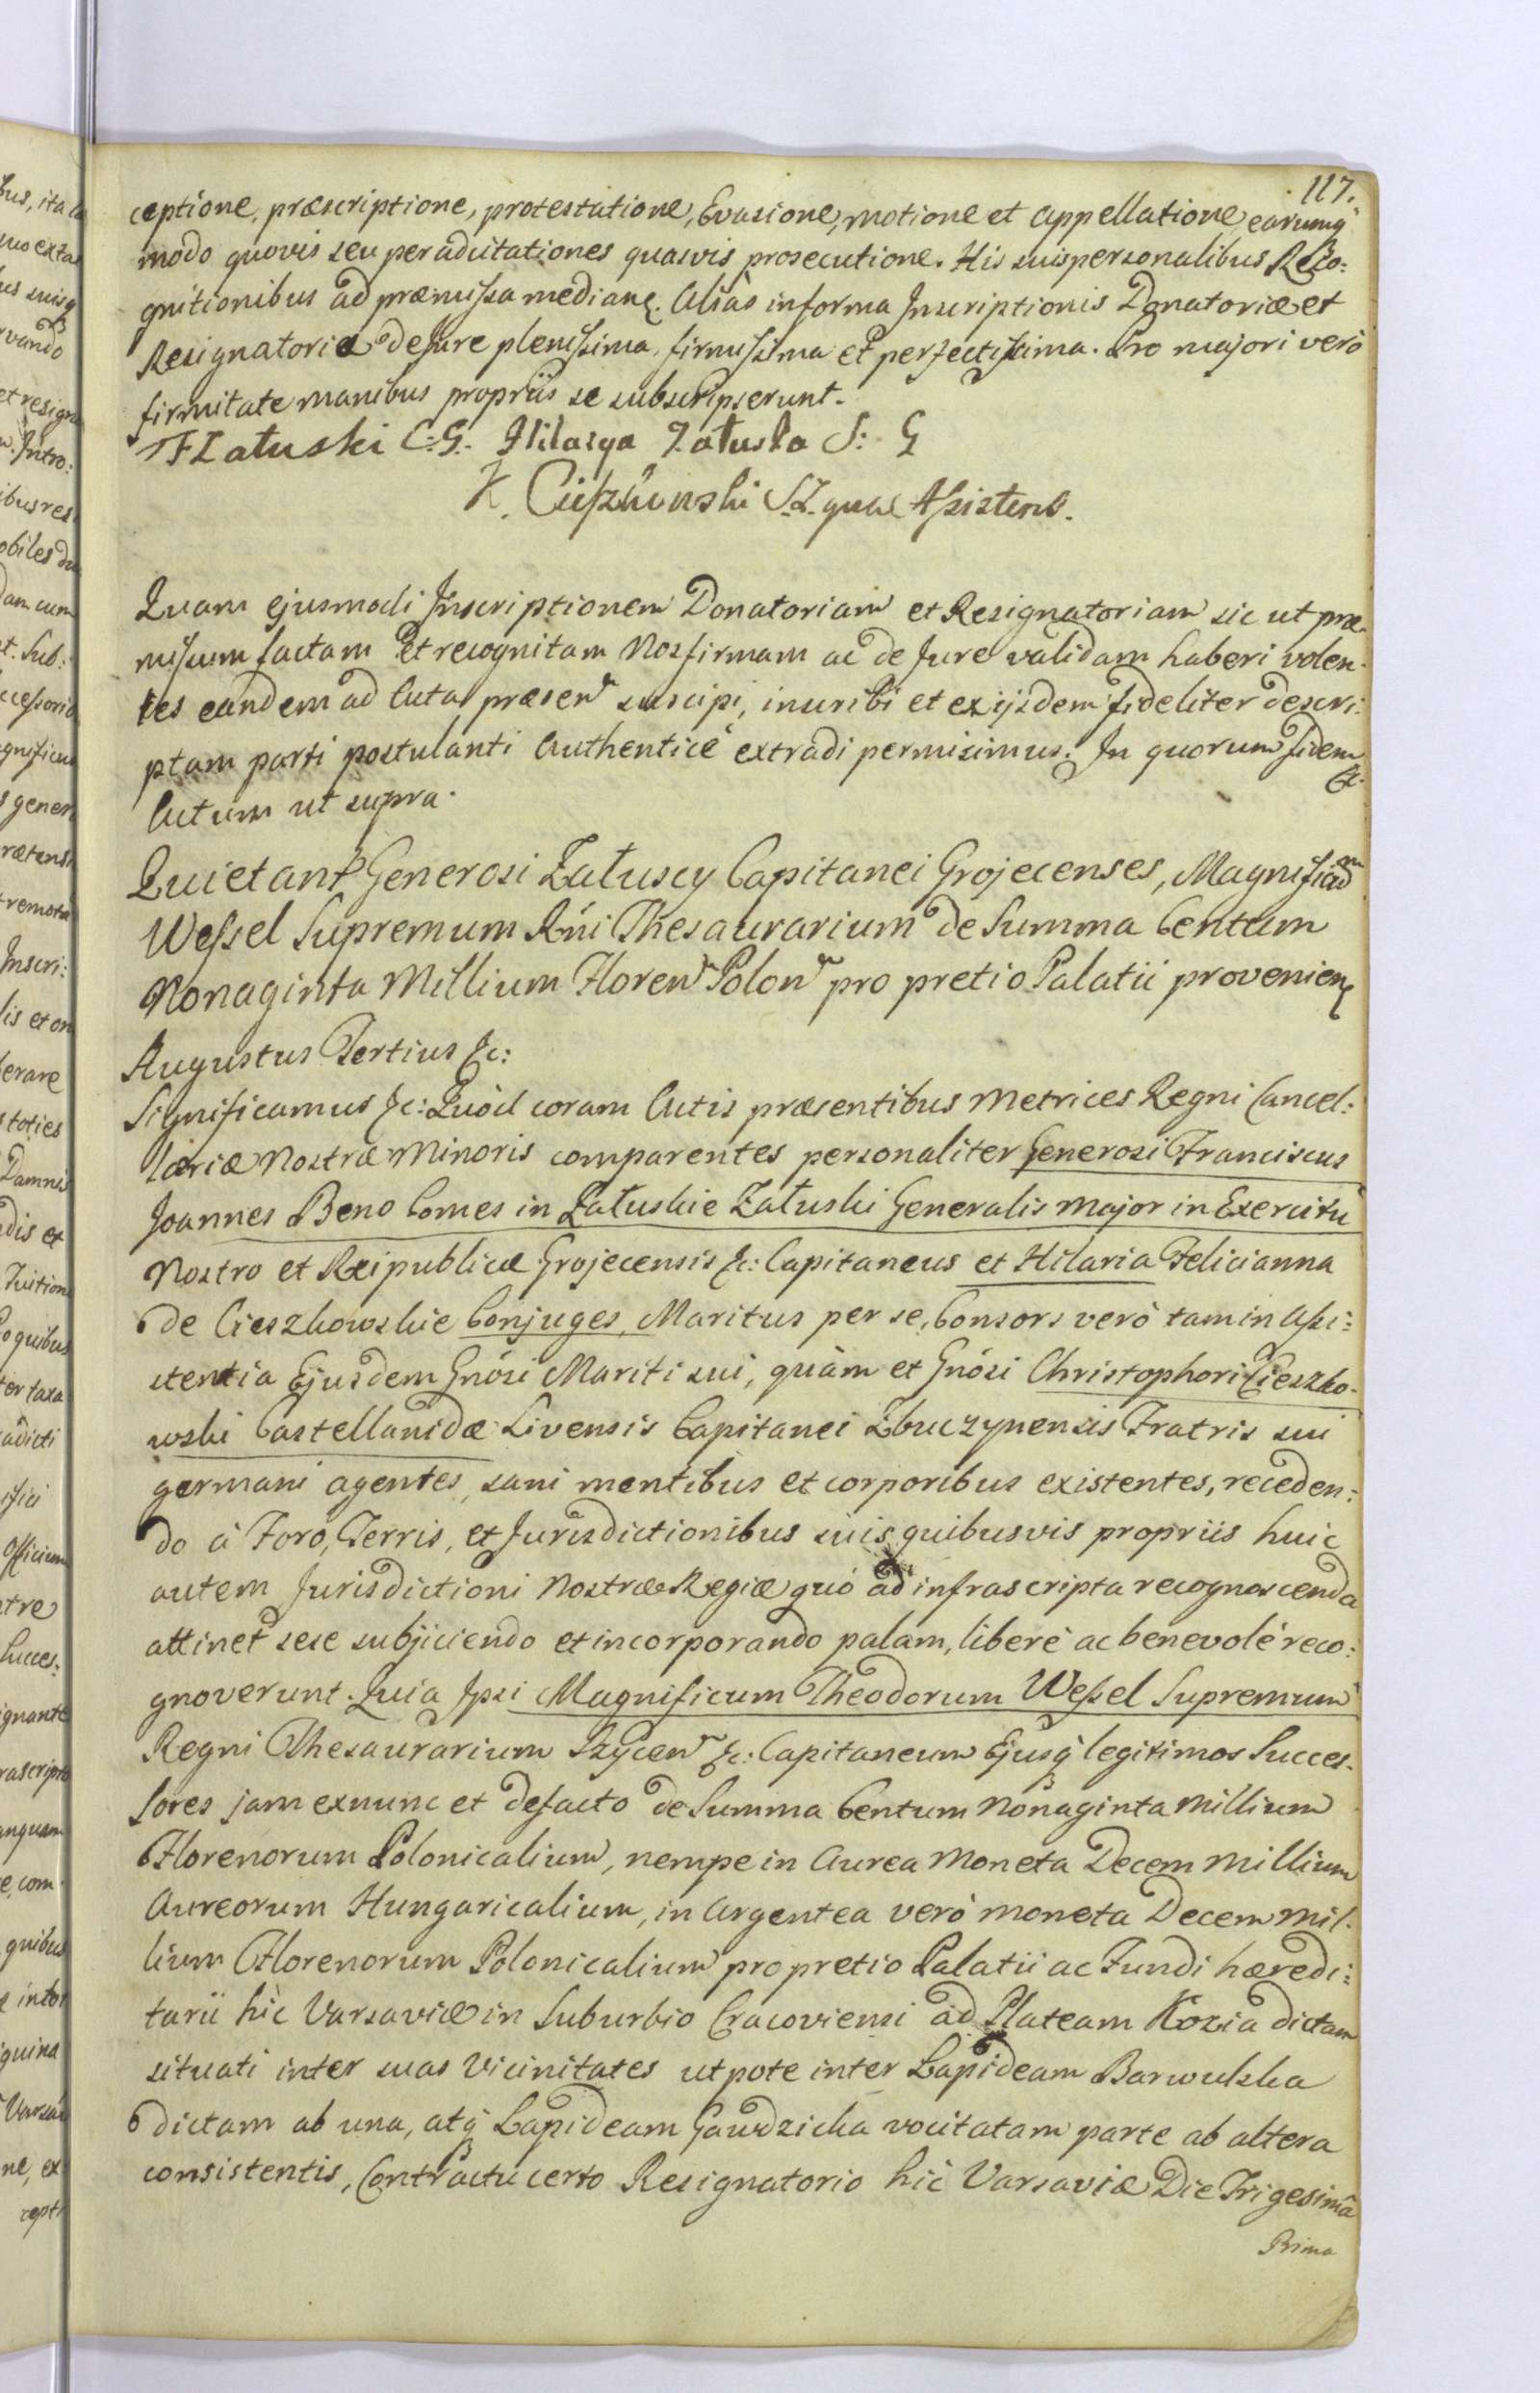 117.
ceptione, præscriptione, protestatione, Evasione, motione et appellatione, earumq̃
modo quovis seu per adcitationes quasvis prosecutione. His suis personalibus Reco:
gnitionibus ad præmissa median. Aliàs in forma Inscriptionis Donatoriæ et
Resignatoriæ de Jure plenissima, firmissima et perfectissima. Pro majori verò
firmitate manibus propriis se subscripserunt.
F Załuski C: G. Hilarya Załuska S: G
K. Cieszkowski S.Z. qua Assistens.
Quam ejusmodi Inscriptionem Donatoriam et Resignatoriam sic ut præ-
missum factam et recognitam Nos firmam ac de Jure validam haberi volen-
tes eandem ad Acta præsen suscipi, inscribi et ex ijsdem fideliter descri:
ptam parti postulanti Authenticè extradi permisimus. In quorum fidem
&.
Actum ut supra.
Quietant Generosi Załuscy Capitanei Grojecenses, Magnificum
Wessel Supremum Rńi Thesaurarium de Summa Centum
Nonaginta Millium Floren Polon pro pretio Palatii provenien
Augustus Tertius &c:
Significamus &c: Quòd coram Actis præsentibus Metrices Regni Cancel:
lariæ Nostræ Minoris comparentes personaliter Generosi Franciscus
Joannes Beno Comes in Załuskie Załuski Generalis Major in Exercitu
Nostro et Reipublicæ Grojecensis &c: Capitaneus et Hilaria Felicianna
de Cieszkowskie Conjuges, Maritus per se, Consors verò tam in Assi:
stentia Ejusdem Gnósi Mariti sui, quàm et Gnósi Christophori Cieszko-
wski Castellanidæ Livensis Capitanei Zbuczynensis Fratris sui
germani agentes, sani mentibus et corporibus existentes, receden:
do à Foro, Terris, et Jurisdictionibus suis quibusvis propriis huic
autem Jurisdictioni Nostræ Regiæ quò ad infrascripta recognoscenda
attinet sese subjiciendo et incorporando palam, liberè ac benevolè reco:
gnoverunt. Quia Ipsi Magnificum Theodorum Wessel Supremum
Regni Thesaurarium Szÿcen &c: Capitaneum Ejusq̃ legitimos Succes-
sores jam exnunc et defacto de Summa Centum Nonaginta Millium
Florenorum Polonicalium, nempe in Aurea Moneta Decem Millium
Aureorum Hungaricalium, in Argentea verò moneta Decem Mil-
lium Florenorum Polonicalium pro pretio Palatii ac Fundi hæredi:
tarii hìc Varsaviæ in Suburbio Cracoviensi ad Plateam Kozia dictam
situati inter suas Vicinitates utpote inter Lapideam Barwulska
dictam ab una, atq̃ Lapideam Gawdzicka vocitatam parte ab altera
consistentis, Contractu certo Resignatorio hìc Varsaviæ Die Trigesimâ
Prima